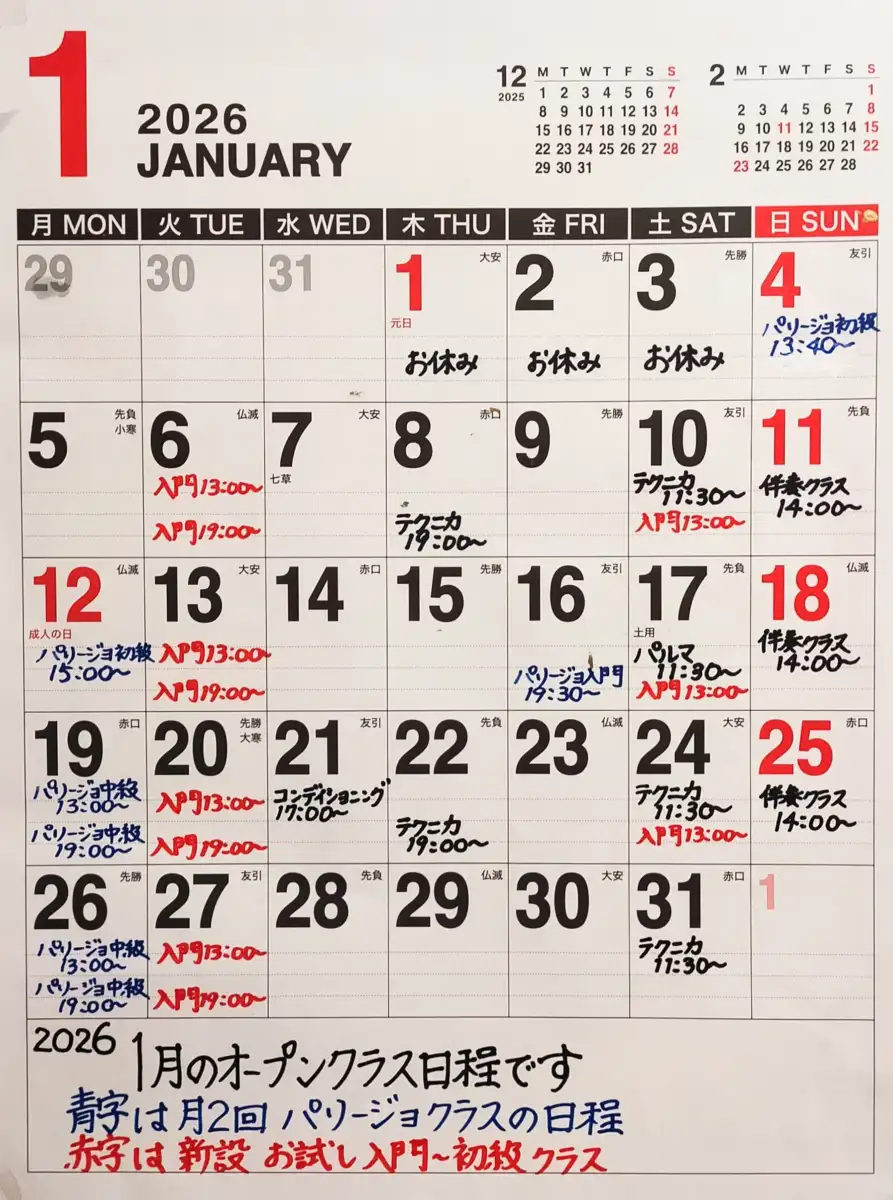 1
2026
JANUARY
12 M T W T F S S
2025 1 2 3 4 5 6 7
8 9 10 11 12 13 14
15 16 17 18 19 20 21
22 23 24 25 26 27 28
29 30 31
2 M T W T F S S
1
2 3 4 5 6 7 8
9 10 11 12 13 14 15
16 17 18 19 20 21 22
23 24 25 26 27 28
月 MON 火 TUE 水 WED 木 THU 金 FRI 土 SAT 日 SUN
29
30
31
1 大安
元日
お休み
2 赤口
お休み
3 先勝
お休み
4 友引
パリージョ初級
13:40〜
5 先負
小寒
6 仏滅
入門13:00〜
入門19:00〜
7 大安
七草
8 赤口
テクニカ
19:00〜
9 先勝
10 友引
テクニカ
11:30〜
入門13:00〜
11 先負
伴奏クラス
14:00〜
12 仏滅
成人の日
パリージョ初級
15:00〜
13 大安
入門13:00〜
入門19:00〜
14 赤口
15 先勝
16 友引
パリージョ入門
19:30〜
17 先負
土用
パルマ
11:30〜
入門13:00〜
18 仏滅
伴奏クラス
14:00〜
19 赤口
パリージョ中級
13:00〜
パリージョ中級
19:00〜
20 先勝
大寒
入門13:00〜
入門19:00〜
21 友引
コンディショニング
17:00〜
22 先負
テクニカ
19:00〜
23 仏滅
24 大安
テクニカ
11:30〜
入門13:00〜
25 赤口
伴奏クラス
14:00〜
26 先勝
パリージョ中級
13:00〜
パリージョ中級
19:00〜
27 友引
入門13:00〜
入門19:00〜
28 先負
29 仏滅
30 大安
31 赤口
テクニカ
11:30〜
1
2026 1月のオープンクラス日程です
青字は月2回 パリージョクラスの日程
赤字は 新設 お試し入門〜初級クラス